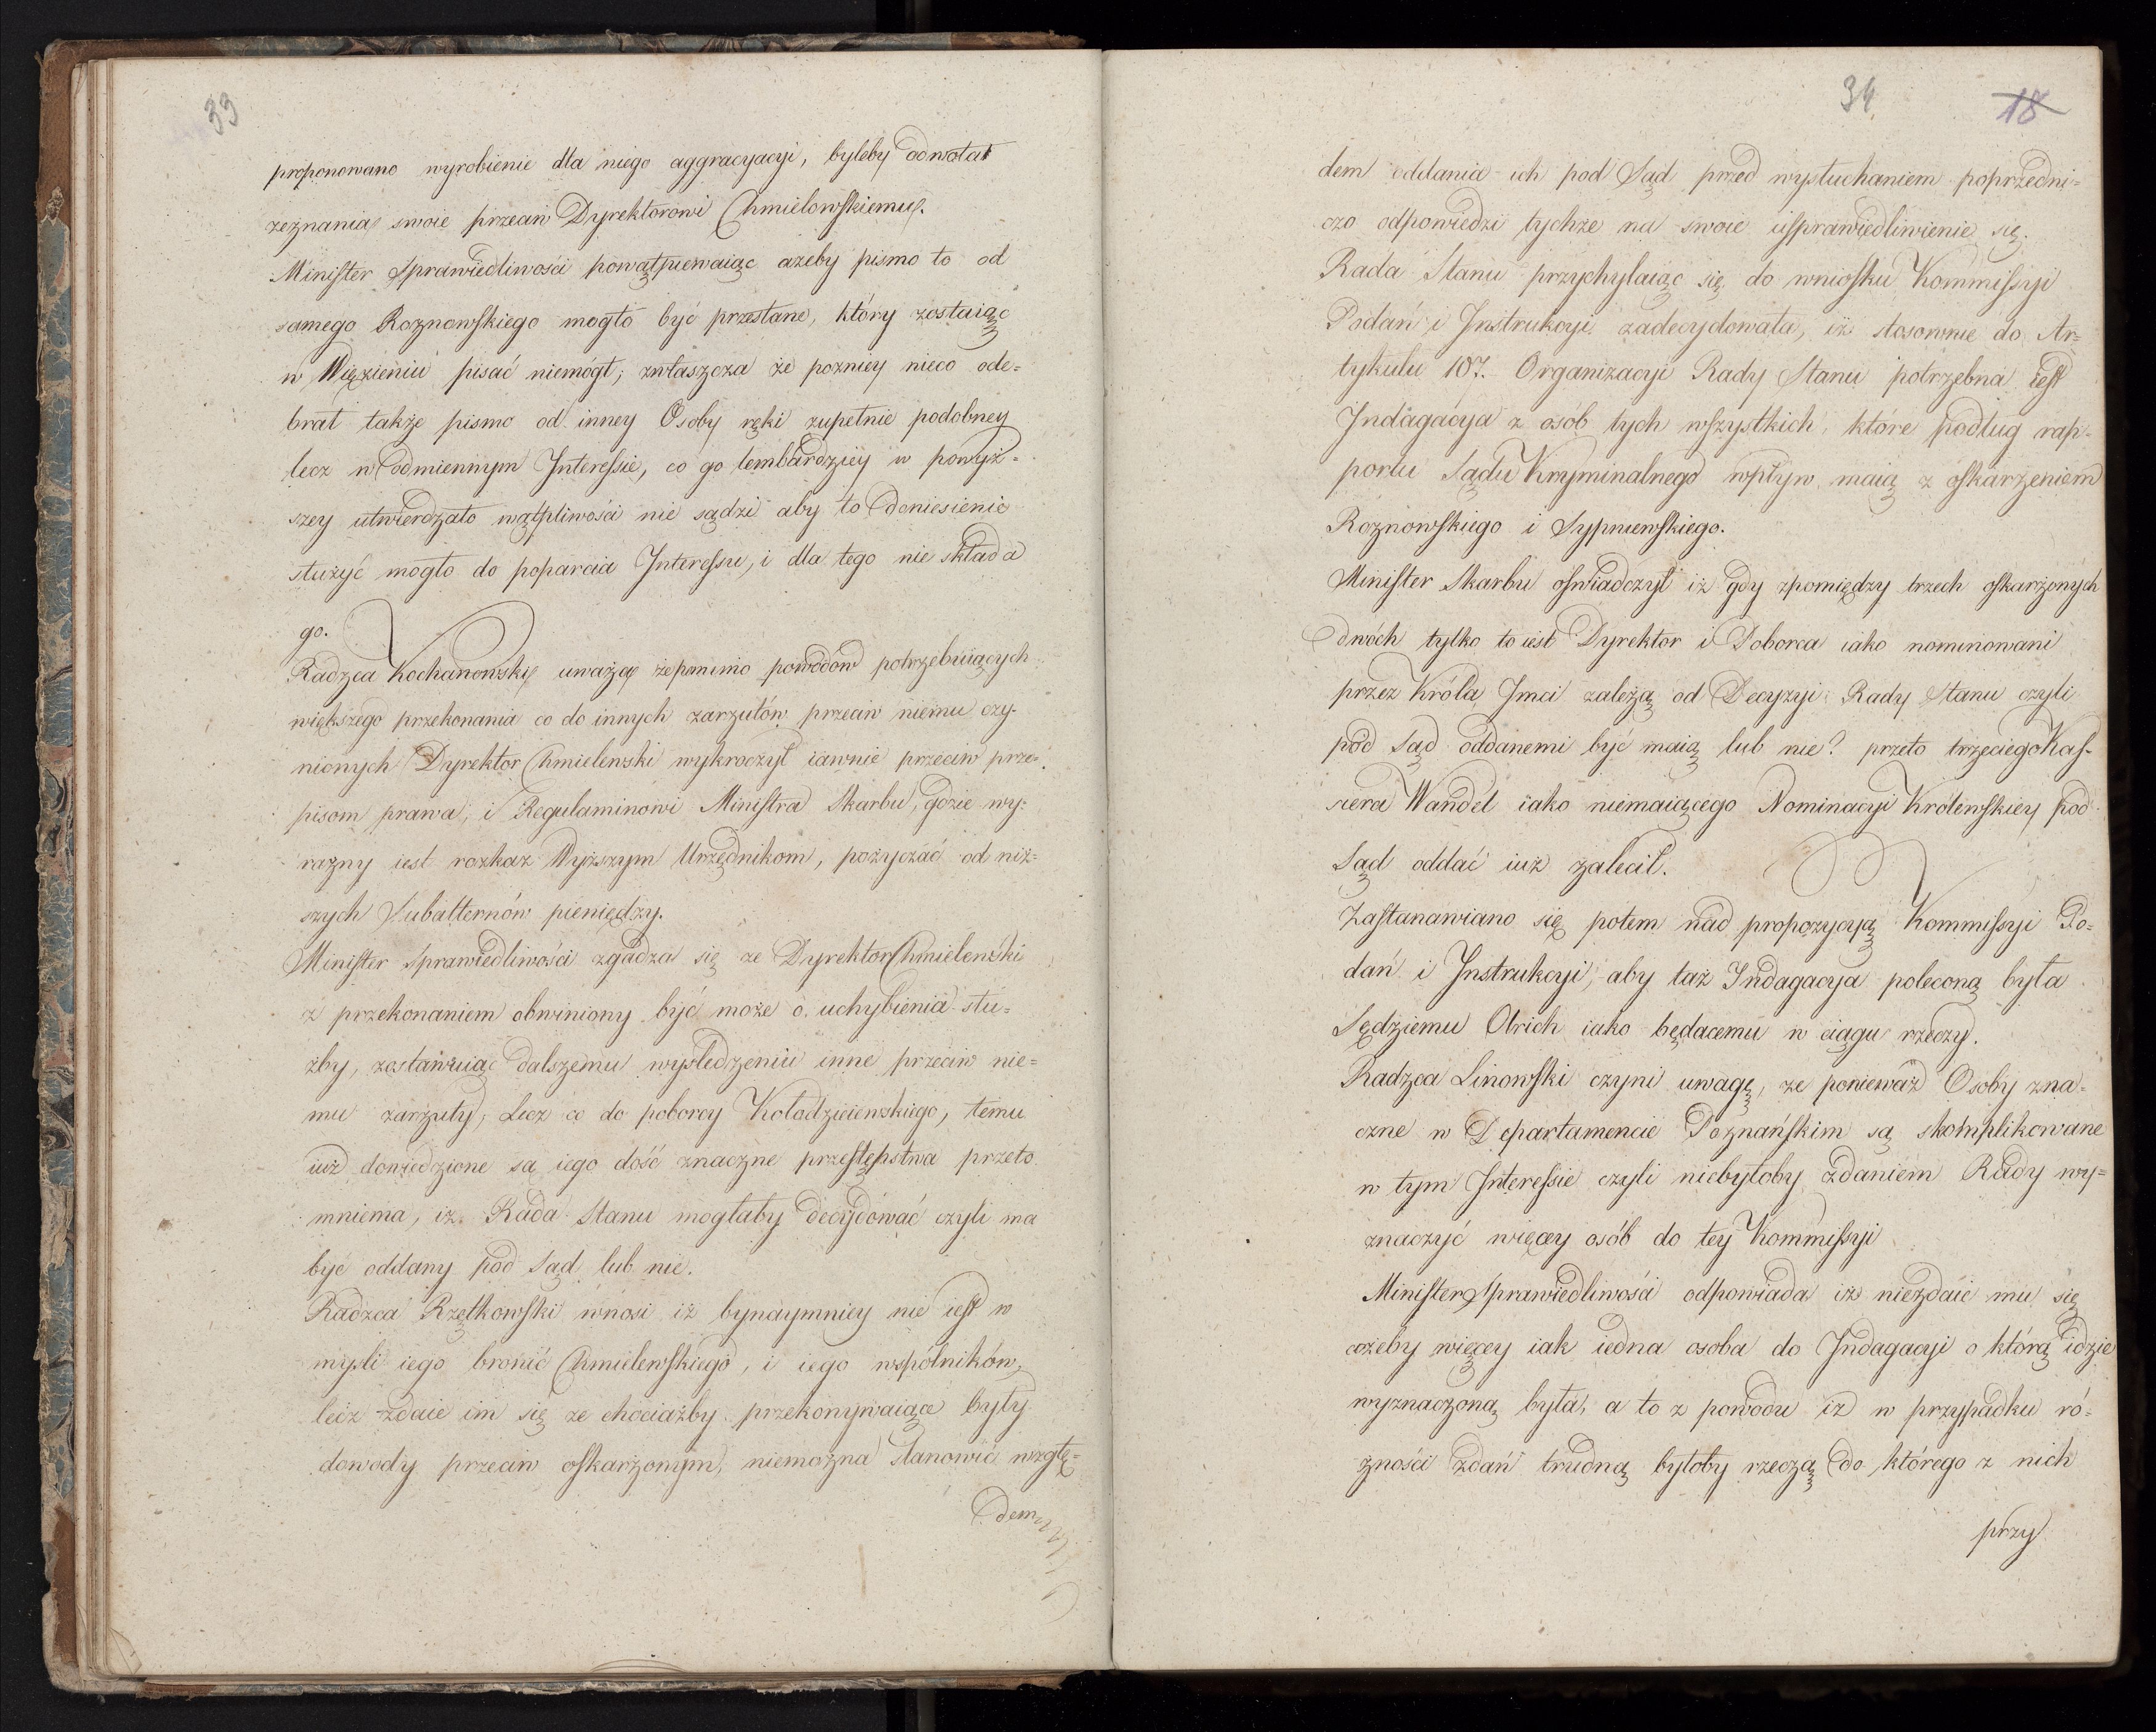 33
proponowano wyrobienie dla niego aggracyacyi, byleby odwołał
zeznania swoie przeciw Dyrektorowi Chmielowskiemu.
Minister Sprawiedliwości powątpiewaiąc ażeby pismo to od
samego Roznowskiego mogło być przesłane, który zostaiąc
w Więzieniu pisać niemógł; zwłaszcza że pozniey nieco ode=
brał także pismo od inney Osoby ręki zupełnie podobney
lecz w odmiennym Interessie, co go tembardziey w powyż=
szey utwierdzało wątpliwości nie sądzi aby to doniesienie
służyć mogło do poparcia Interessu, i dla tego nie składa
go.
Radzca Kochanowski uważa że pomimo powodów potrzebuiących
większego przekonania co do innych zarzutów przeciw niemu czy=
nionych Dyrektor Chmielenski wykroczył iawnie przeciw prze=
pisom prawa, i Regulaminowi Ministra Skarbu, gdzie wy=
raźny iest rozkaz Wyższym Urzędnikom, pożyczać od niż=
szych Subalternów pieniędzy.
Minister Sprawiedliwości zgadza się ze Dyrektor Chmielenski
z przekonaniem obwiniony być może o uchybienia słu=
żby, zostawuiąc dalszemu wyśledzeniu inne przeciw nie=
mu zarzuty, Lecz co do poborcy Kołodzieienskiego, temu
iuż dowiedzione są iego dość znaczne przestępstwa przeto
mniema, iż Rada Stanu mogłaby decydować czyli ma
być oddany pod Sąd lub nie.
Radzca Rzętkowski wnosi iż bynaymniey nie iest w
mysli iego bronić Chmielewskiego, i iego wspólników,
lecz zdaie im się ze chociażby przekonywaiące były
dowody przeciw oskarżonym, niemożna stanowić wzglę=
dem
34
18
dem oddania ich pod Sąd przed wysłuchaniem poprzedni=
czo odpowiedzi tychże na swoie usprawiedliwienie się.
Rada Stanu przychylaiąc się do wniosku Kommissyi
Podań i Instrukcyi zadecydowała, iż stosownie do Ar=
tykułu 107. Organizacyi Rady Stanu potrzebna iest
Indagacya z osób tych wszystkich, które podług rap=
portu Sądu Kryminalnego wpływ maią z oskarżeniem
Roznowskiego i Sypniewskiego.
Minister Skarbu oswiadczył iż gdy zpomiędzy trzech oskarżonych
dwóch tylko to iest Dyrektor i Poborca iako nominowani
przez Króla Jmci zależą od Decyzyi Rady Stanu czyli
pod sąd oddanemi być maią lub nie? przeto trzeciego Kas=
siera Wandel iako niemaiącego Nominacyi Królewskiey pod
Sąd oddać iuż zalecił.
Zastanawiano się potem nad propozycyą Kommissyi Po=
dań i Instrukcyi, aby taż Indagacya poleconą była
Sędziemu Olrich iako będacemu w ciągu rzeczy.
Radzca Linowski czyni uwagę, ze ponieważ Osoby zna=
czne w Departamencie Poznańskim są skomplikowane
w tym Interessie czyli niebyłoby zdaniem Rady wy=
znaczyć więcey osób do tey Kommissyi
Minister Sprawiedliwości odpowiada iż niezdaie mu się
ażeby więcey iak iedna osoba do Indagacyi o którą idzie
wyznaczoną była, a to z powodu iż w przypadku ró=
żności zdań trudną byłoby rzeczą do którego z nich
przy